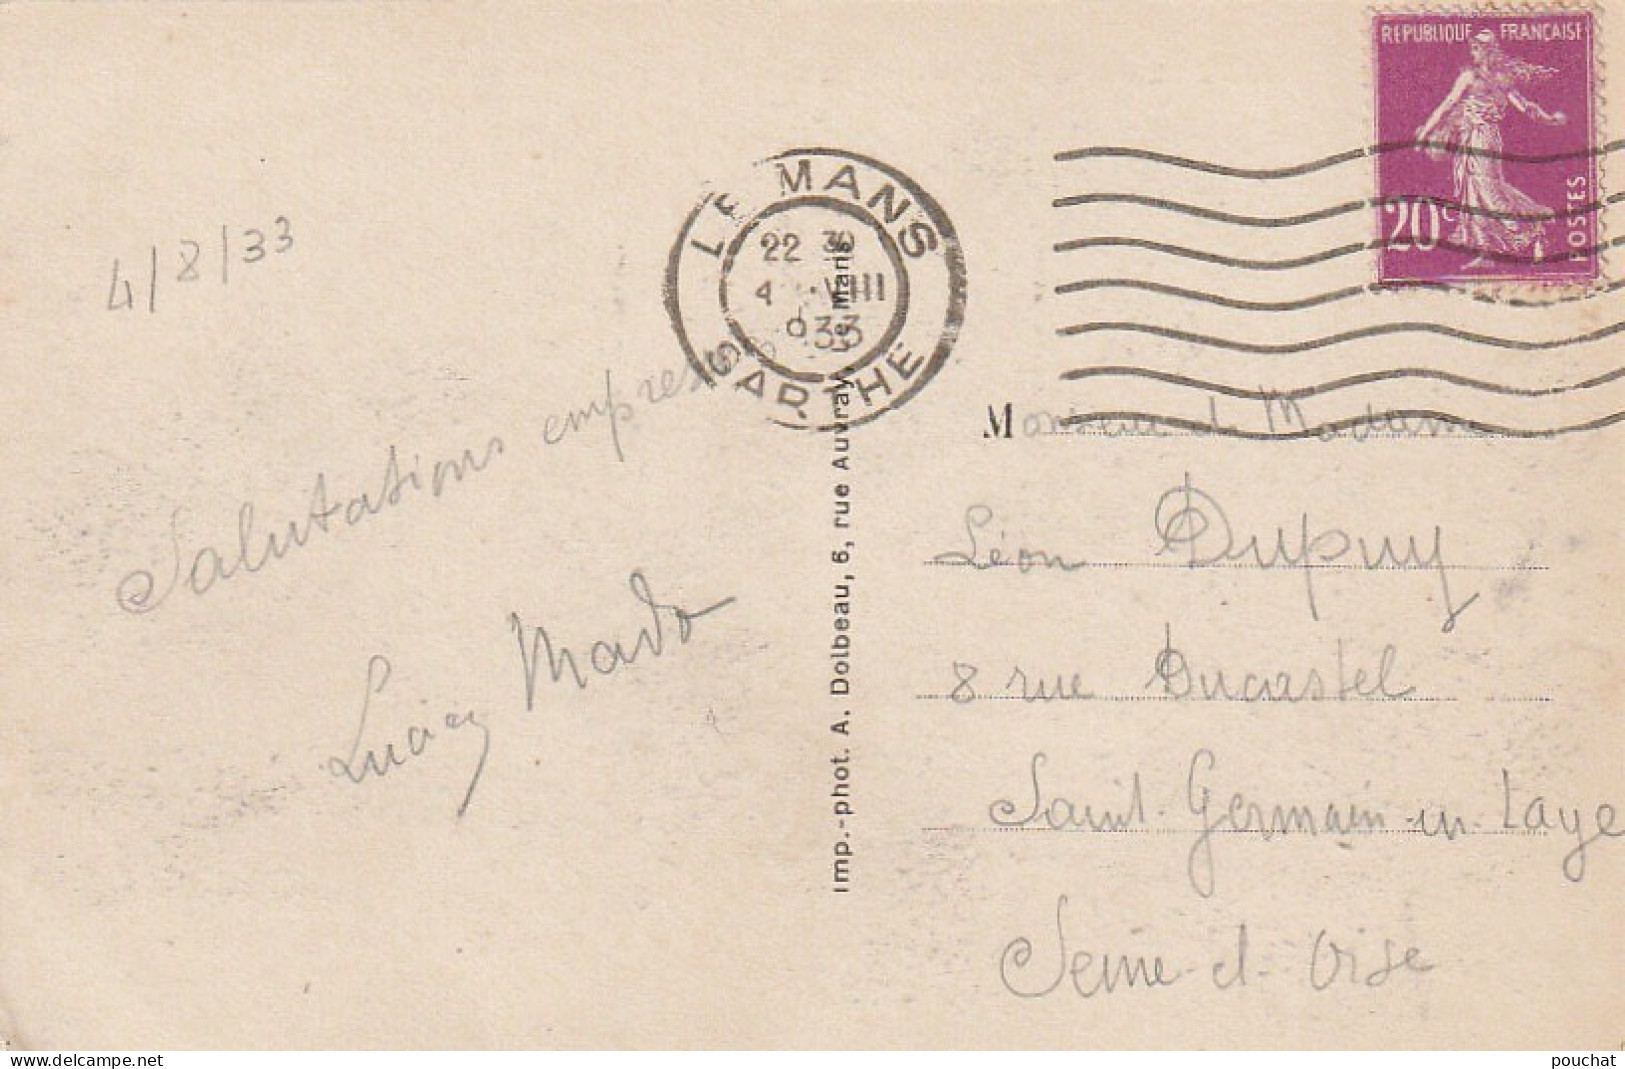 REPUBLIQUE FRANÇAISE
20c
POSTES
LE MANS
22 30
4 VIII
933
SARTHE
4/8/33
Salutations empressées
Lucien Mado
Imp.-phot. A. Dolbeau, 6, rue Auvray, Le Mans
Monsieur et Madame
Léon Dupuy
8 rue Ducastel
Saint-Germain-en-Laye
Seine-et-Oise
www.delcampe.net
pouchat